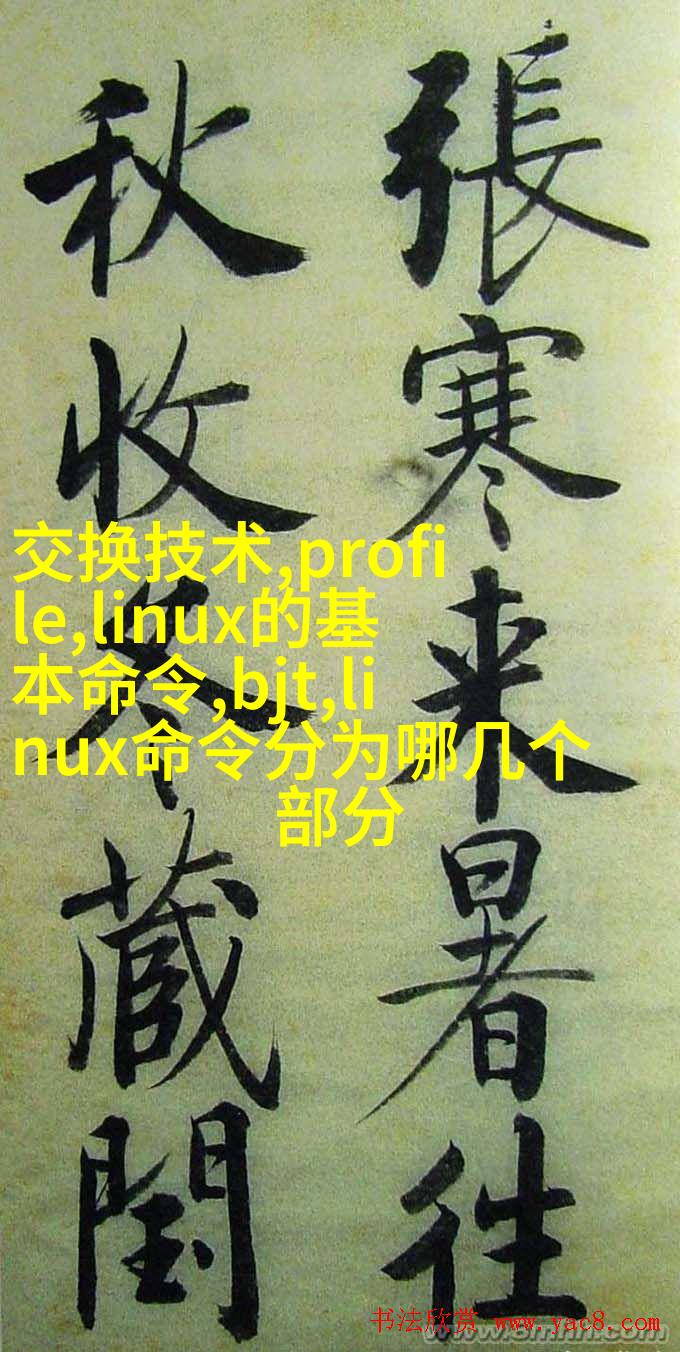 張寒来暑往
秋收冬蔵閏
交换技术,profi
le,linux的基
本命令,bjt,li
nux命令分为哪几个
部分
书法欣赏 www.yac8.com